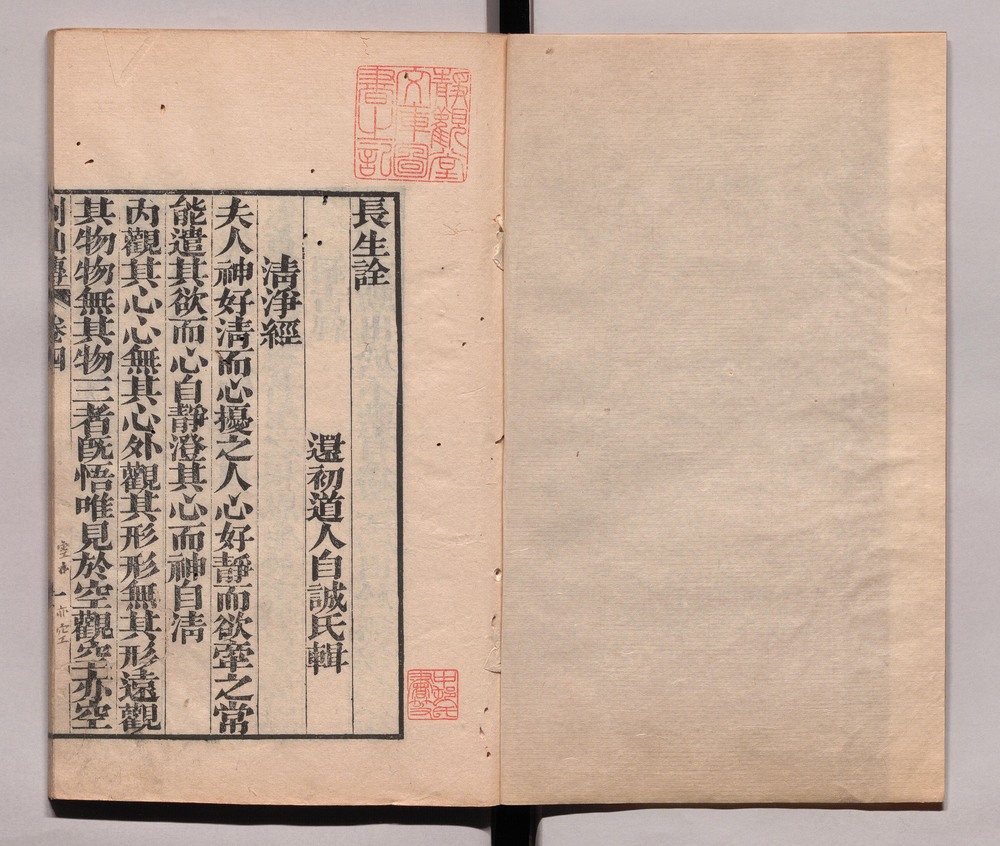 長生詮
還初道人自誠氏輯
清淨經
夫人神好清而心擾之人心好靜而欲牽之常
能遣其欲而心自靜澄其心而神自清
內觀其心心無其心外觀其形形無其形遠觀
其物物無其物三者旣悟唯見於空觀空亦空
列仙傳 卷四 一
靜觀堂
文庫圖
書之記